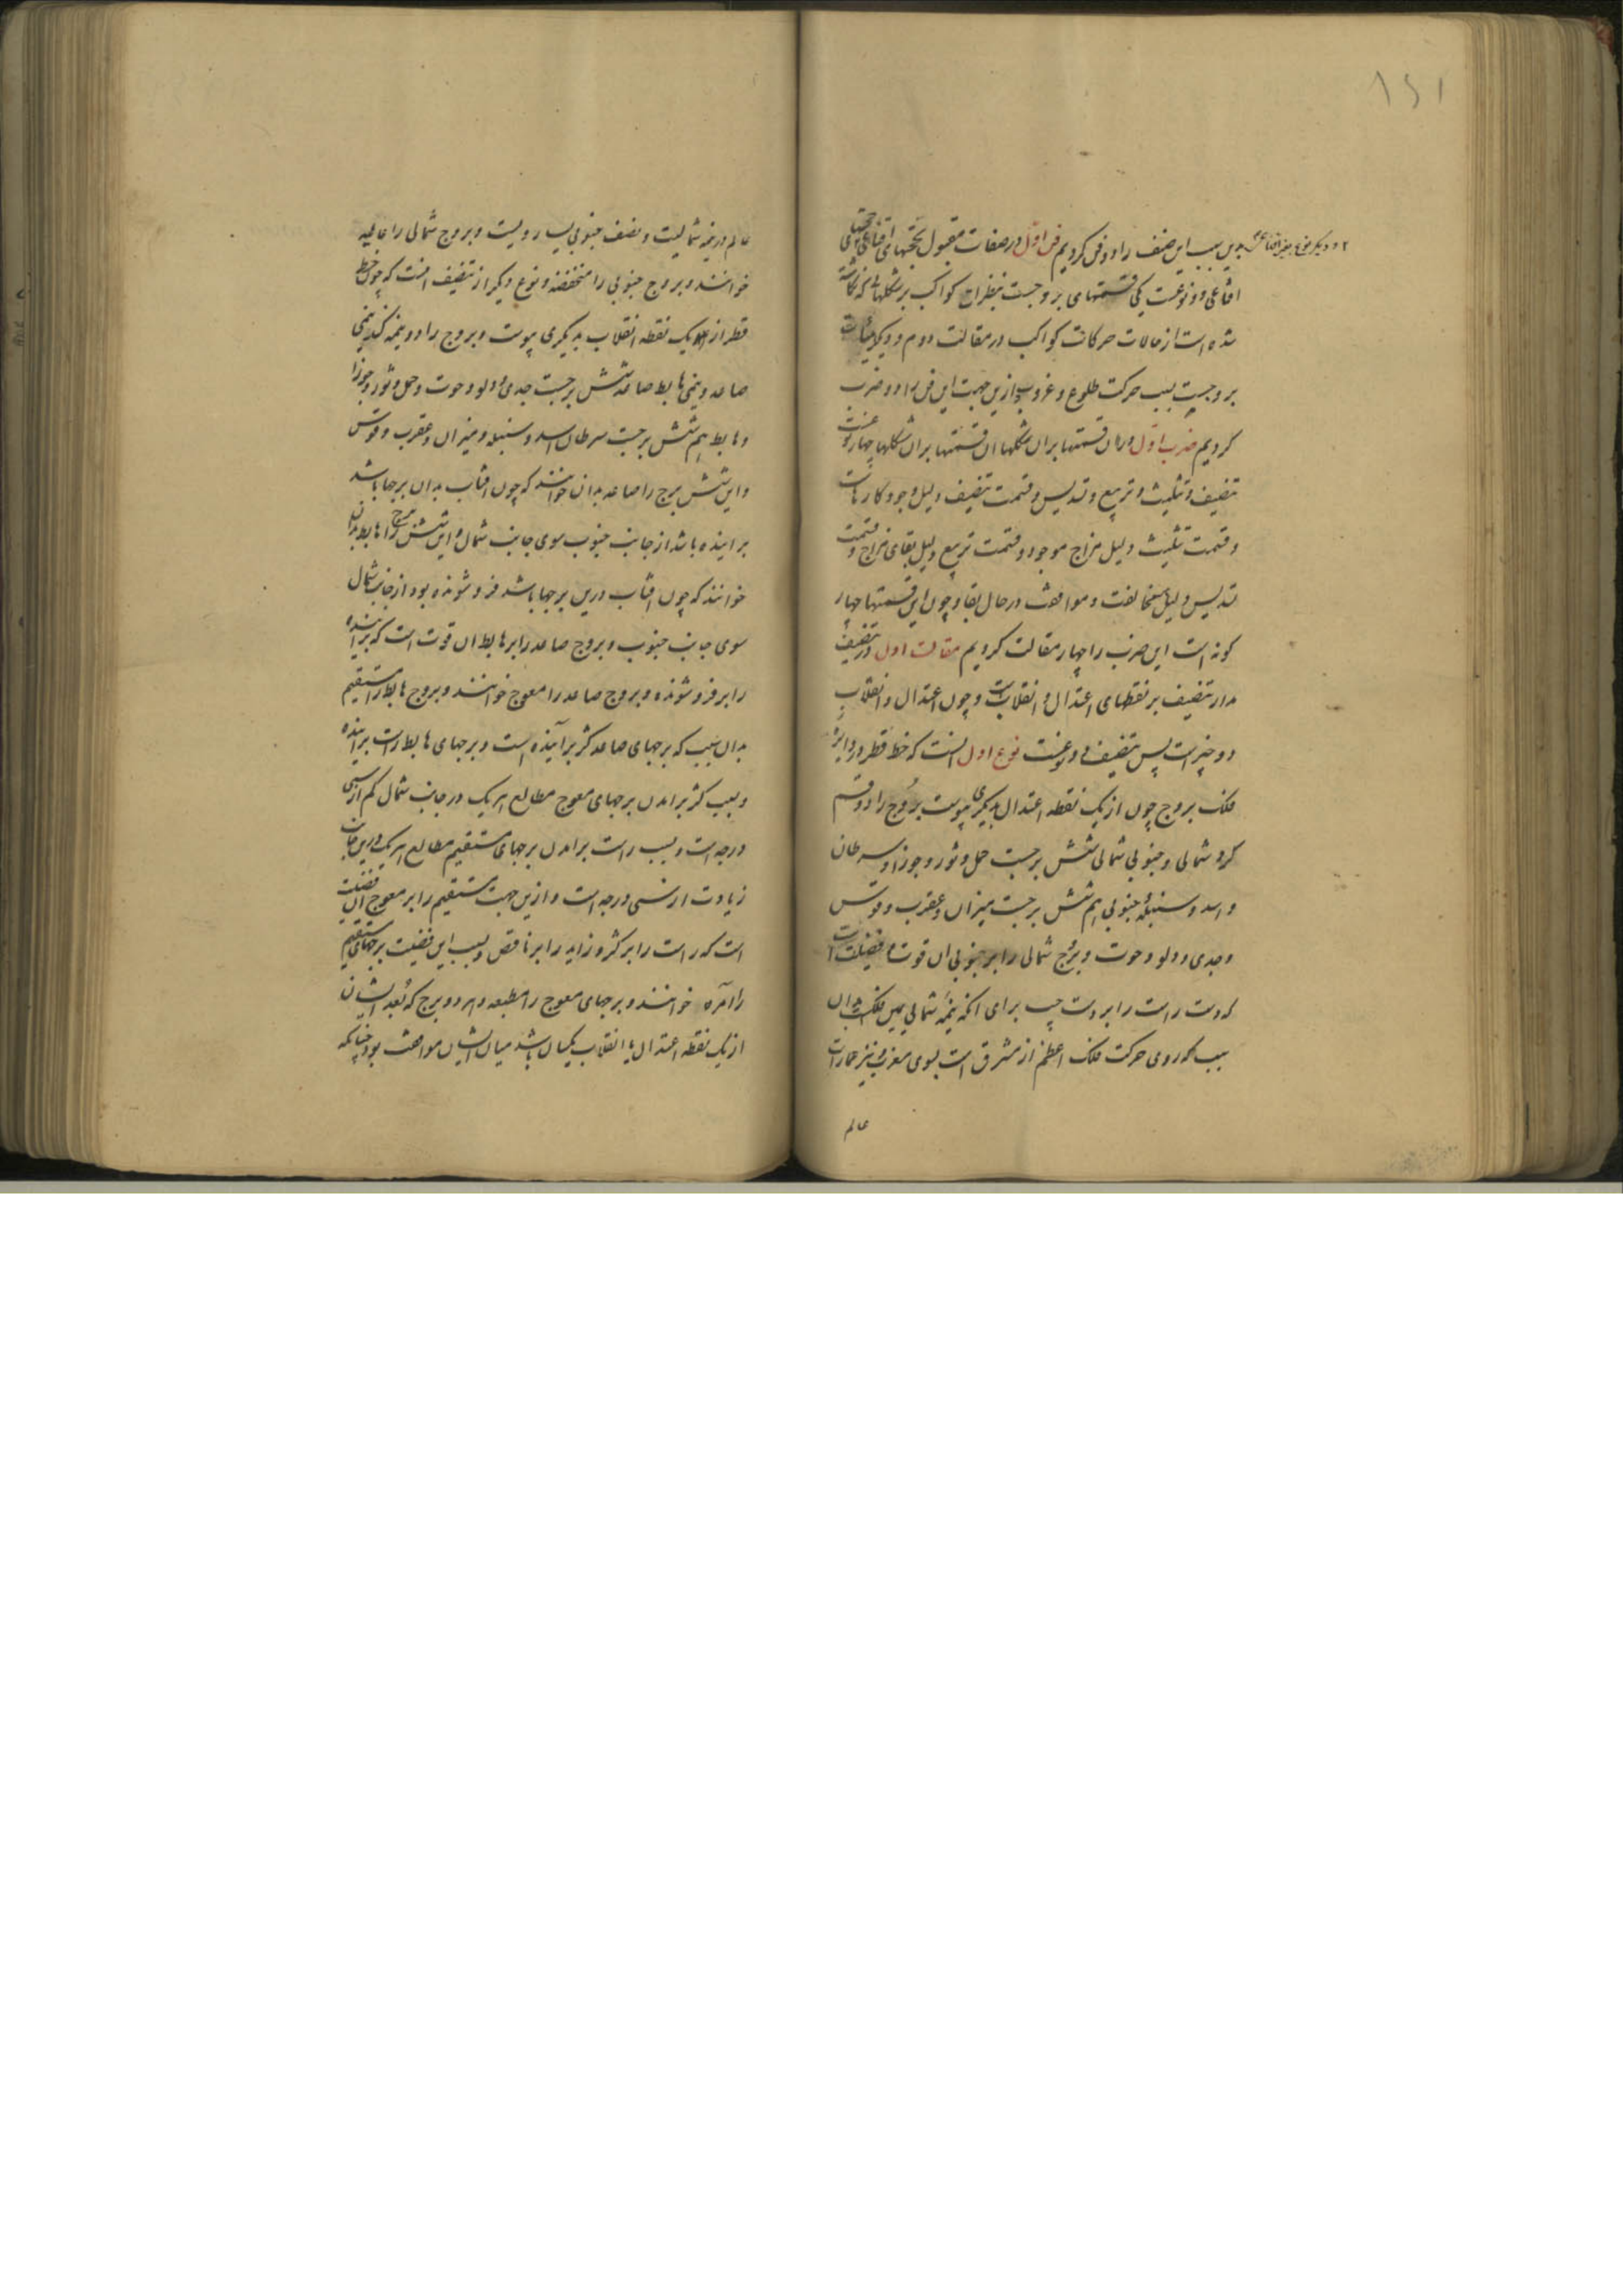 ۱۵۱
۲ و دیگر نوع غیر اقناعی
بدین سبب این صنف را دو فن کردیم فن اول در صفات مقبول حجتهای اقناعی حجتهای
اقناعی دو نوعست یکی قسمتهای بروجست بنظراح کواکب بر شکلهایی که
شده است از حالات حرکات کواکب در مقالت دوم و دیگر
بروجست بسبب حرکت طلوع و غروب و ازین جهت این فن را دو ضرب
کردیم ضرب اول دران قسمتها بران شکلها ان قسمتها بران شکلها چهار نوعست
تنصیف و تثلیث و تربیع و تسدیس و قسمت تنصیف دلیل وجود کارهاست
و قسمت تثلیث دلیل مزاج موجود و قسمت تربیع دلیل بقای مزاج و قسمت
تسدیس دلیل مخالفت و موافقت در حال بقا و چون این قسمتها چهار
کونه است این ضرب را چهار مقالت کردیم مقالت اول در تنصیف
مدار تنصیف بر نقطهای اعتدال و انقلابست و چون اعتدال و انقلاب
دو چیز است پس تنصیف دو نوعست نوع اول انست که خط قطر دایره
فلک بروج چون از یک نقطه اعتدال بدیکری پیوست بروج را دو قسم
کرد شمالی و جنوبی شمالی شش برجست حمل و ثور و جوزا و سرطان
و اسد و سنبله و جنوبی هم شش برجست میزان و عقرب و قوس
و جدی و دلو و حوت و بروج شمالی را بر جنوبی ان قوت و فضیلت است
که دست راست را بر دست چپ برای انکه نیمه شمالی یمین فلکست بدان
سبب که روی حرکت فلک اعظم از مشرق است بسوی مغرب و نیز عمارات
عالم
عالم در نیمه شمالیست و نصف جنوبی یسار ویست و بروج شمالی را عالیه
خوانند و بروج جنوبی را منخفضه و نوع دیکر از تنصیف انست که چون خط
قطر از یک نقطه انقلاب بدیکری پیوست و بروج را دو نیمه کند نیمی
صاعد و نیمی هابط صاعد شش برجست جدی و دلو و حوت و حمل و ثور و جوزا
و هابط هم شش برجست سرطان و اسد و سنبله و میزان و عقرب و قوس
و این شش برج را صاعد بدان خوانند که چون افتاب بدان برجها باشد
براینده باشد از جانب جنوب سوی جانب شمال و این شش برج را هابط بدان
خوانند که چون افتاب درین برجها باشد فروشونده بود از جانب شمال
سوی جانب جنوب و بروج صاعد را بر هابط ان قوت است که براینده
را بر فروشونده و بروج صاعد را معوج خوانند و بروج هابط را مستقیم
بدان سبب که برجهای صاعد کژ برآینده است و برجهای هابط راست براینده
و بسبب کژ برامدن برجهای معوج مطالع هر یک در جانب شمال کم از سی
درجه است و بسبب راست برامدن برجهای مستقیم مطالع هر یک درین جانب
زیادت از سی درجه است و ازین جهت مستقیم را بر معوج ان فضیلت
است که راست را بر کژ و زاید را بر ناقص و بسبب این فضیلت برجهای مستقیم
را آمره خوانند و برجهای معوج را مطیعه و هر دو برج که بعد ایشان
از یک نقطه اعتدال یا انقلاب یکسان باشد میان ایشان موافقت بود چنانکه